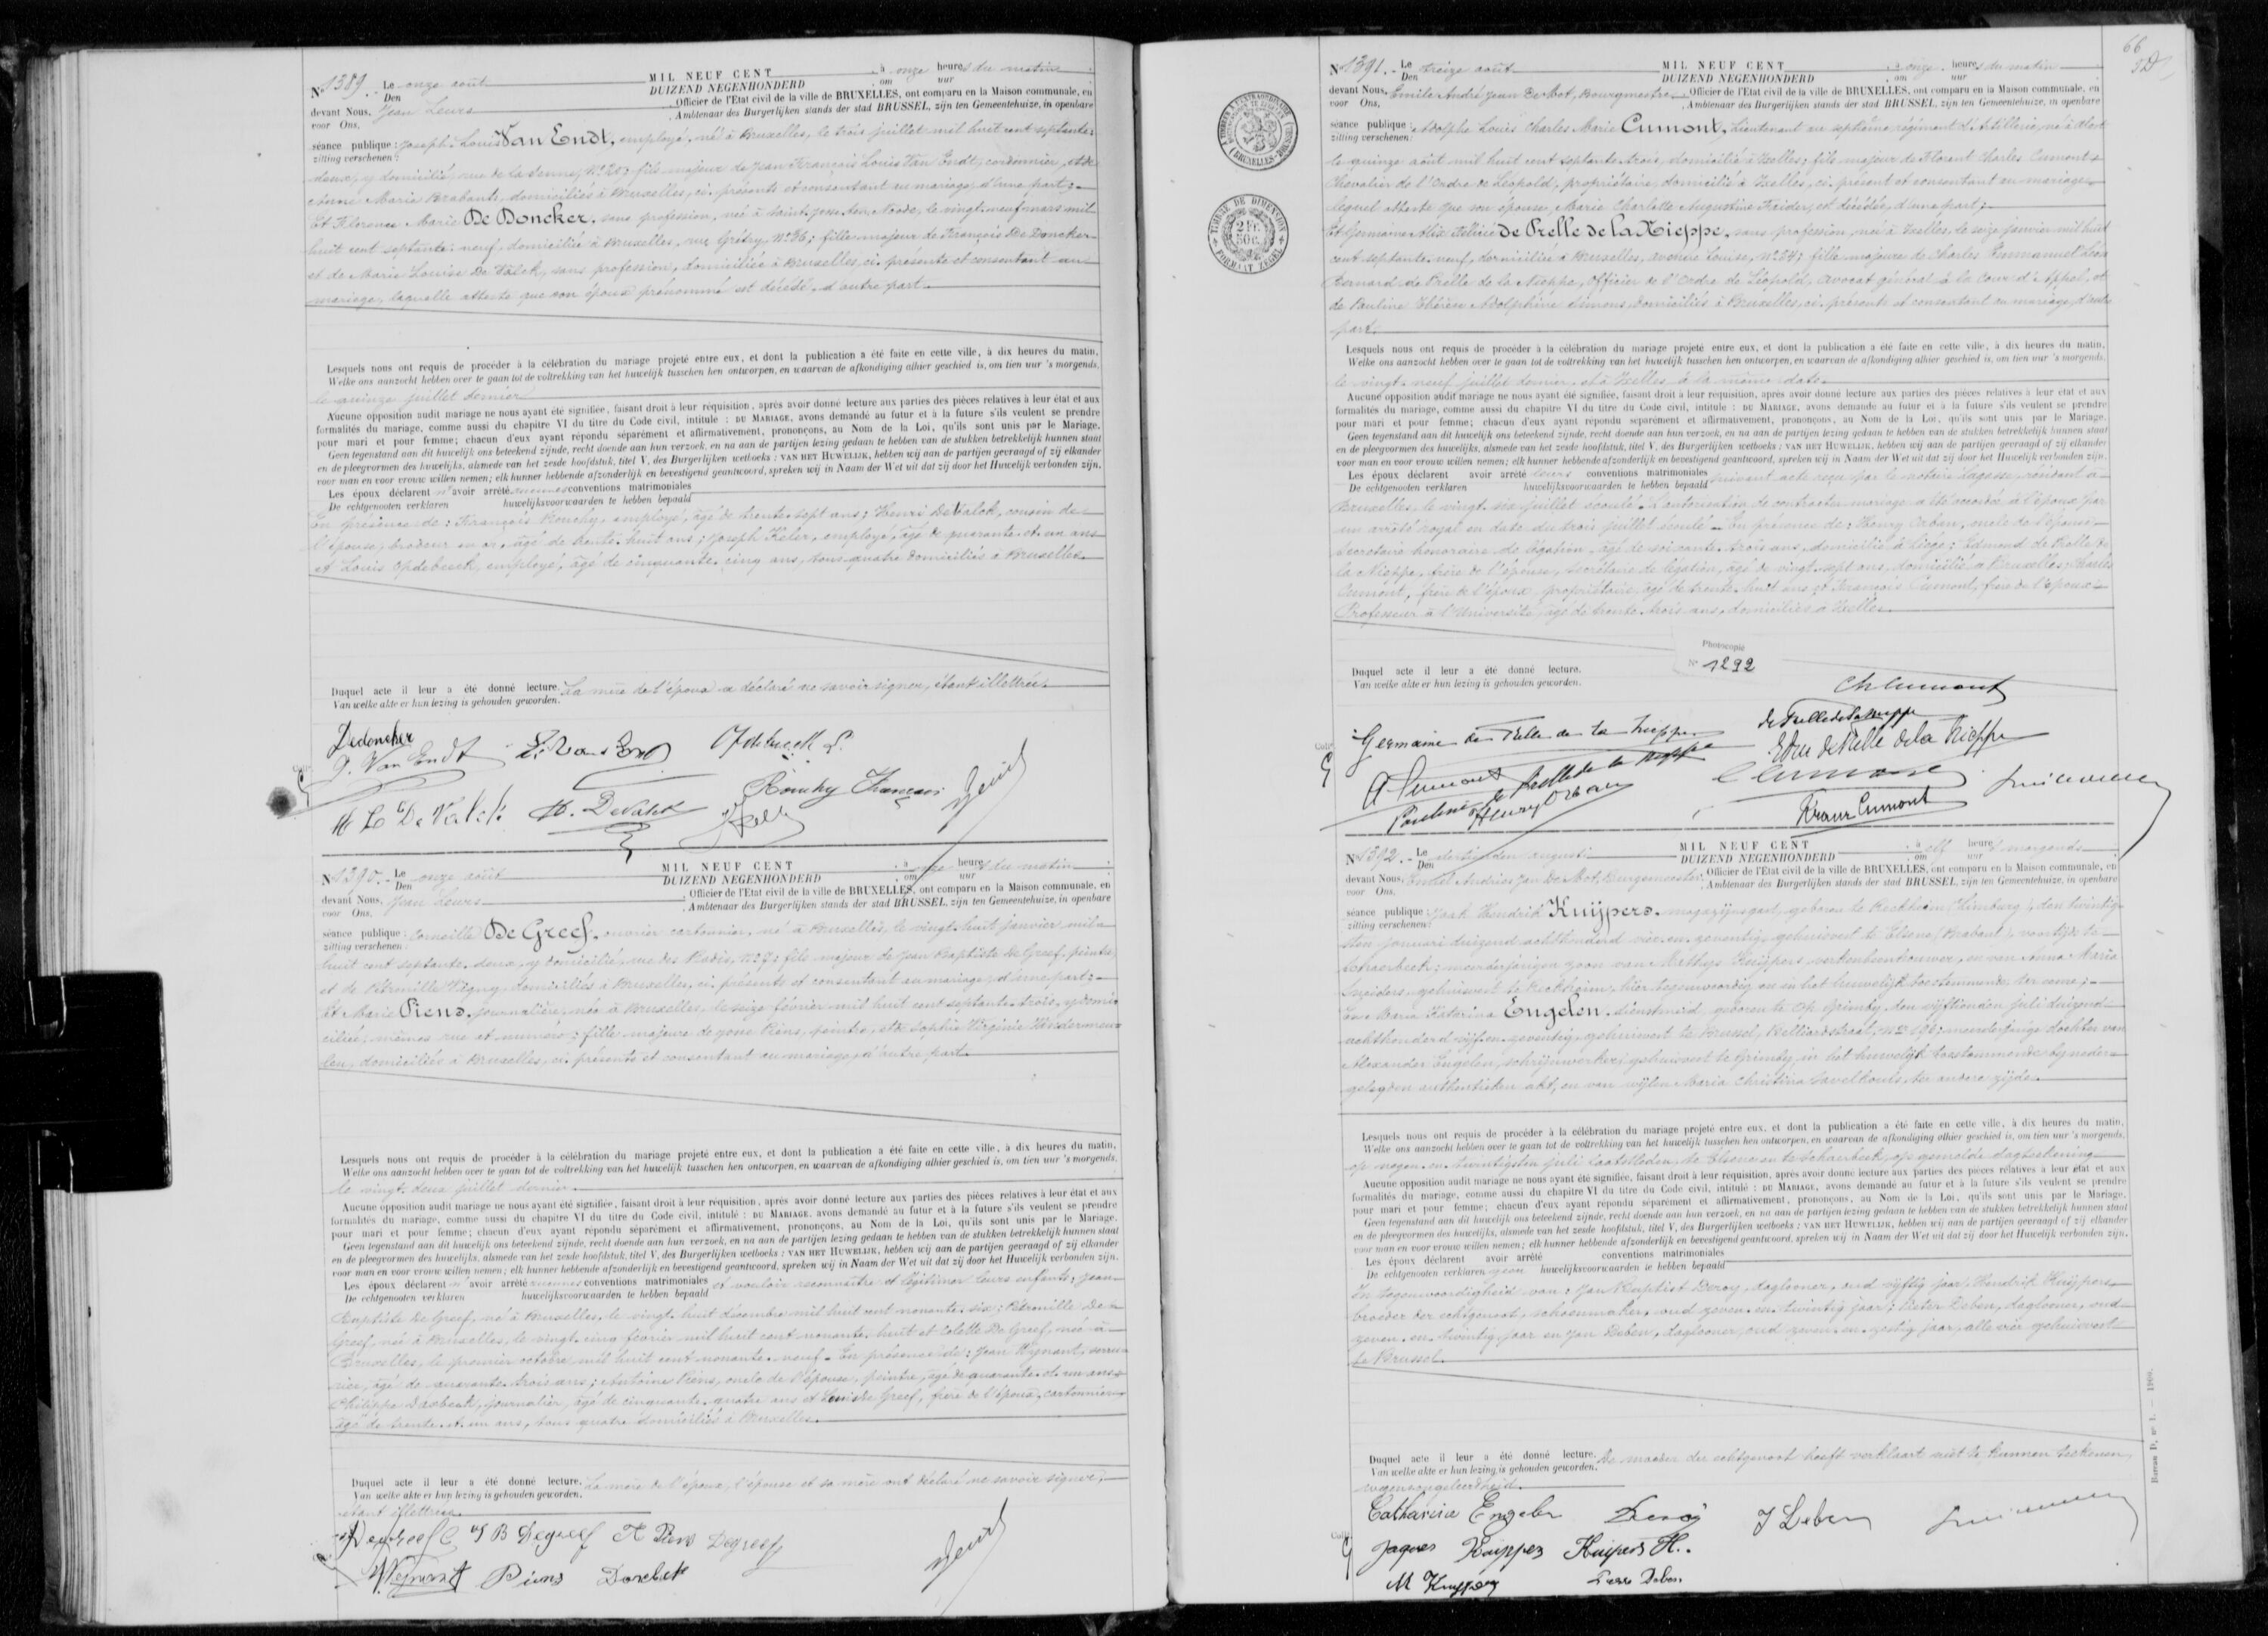 N° 1389. Le onze août MIL NEUF CENT à onze heures du matin
Den DUIZEND NEGENHONDERD om uur
devant Nous, Jean Leurs, Officier de l'Etat civil de la ville de BRUXELLES, ont comparu en la Maison communale, en
voor Ons, Ambtenaar des Burgerlijken stands der stad BRUSSEL, zijn ten Gemeentehuize, in openbare
séance publique : Joseph Louis Van Endt, employé, né à Bruxelles, le trois juillet mil huit cent septante
zitting verschenen :
deux, y domicilié, rue de la Senne, N° 20; fils majeur de Jean François Louis Van Endt, cordonnier, et de
Anne Marie Brabants, domiciliés à Bruxelles, ci-présents et consentant au mariage, d'une part;
Et Florence Marie De Doncker, sans profession, née à Saint-Josse-ten-Noode, le vingt-neuf mars mil
huit cent septante-neuf, domiciliée à Bruxelles, rue Grétry, N° 36; fille majeure de François De Doncker
et de Marie Louise De Valck, sans profession, domiciliée à Bruxelles, ci-présente et consentant au
mariage, laquelle atteste que son époux prénommé est décédé, d'autre part.
Lesquels nous ont requis de procéder à la célébration du mariage projeté entre eux, et dont la publication a été faite en cette ville, à dix heures du matin,
Welke ons aanzocht hebben over te gaan tot de voltrekking van het huwelijk tusschen hen ontworpen, en waarvan de afkondiging alhier geschied is, om tien uur 's morgends,
le quinze juillet dernier
Aucune opposition audit mariage ne nous ayant été signifiée, faisant droit à leur réquisition, après avoir donné lecture aux parties des pièces relatives à leur état et aux
formalités du mariage, comme aussi du chapitre VI du titre du Code civil, intitulé : DU MARIAGE, avons demandé au futur et à la future s'ils veulent se prendre
pour mari et pour femme; chacun d'eux ayant répondu séparément et affirmativement, prononçons, au Nom de la Loi, qu'ils sont unis par le Mariage.
Geen tegenstand aan dit huwelijk ons beteekend zijnde, recht doende aan hun verzoek, en na aan de partijen lezing gedaan te hebben van de stukken betrekkelijk hunnen staat
en de pleegvormen des huwelijks, alsmede van het zesde hoofdstuk, titel V, des Burgerlijken wetboeks : VAN HET HUWELIJK, hebben wij aan de partijen gevraagd of zij elkander
voor man en voor vrouw willen nemen; elk hunner hebbende afzonderlijk en bevestigend geantwoord, spreken wij in Naam der Wet uit dat zij door het Huwelijk verbonden zijn.
Les époux déclarent n'avoir arrêté aucunes conventions matrimoniales
De echtgenooten verklaren huwelijksvoorwaarden te hebben bepaald
En présence de : François Rouchy, employé, âgé de trente-sept ans; Henri De Valck, cousin de
l'épouse, brodeur en or, âgé de trente-huit ans; Joseph Keler, employé, âgé de quarante et un ans
et Louis Opdebeeck, employé, âgé de cinquante-cinq ans, tous quatre domiciliés à Bruxelles
Duquel acte il leur a été donné lecture. La mère de l'époux a déclaré ne savoir signer, étant illettrée.
Van welke akte er hun lezing is gehouden geworden.
Dedoncker
J. Van Endt L. Van Endt Opdebeeck L.
Rouchy François
M L De Valck H. De Valck
N° 1390. Le onze août MIL NEUF CENT à onze heures du matin
Den DUIZEND NEGENHONDERD om uur
devant Nous, Jean Leurs, Officier de l'Etat civil de la ville de BRUXELLES, ont comparu en la Maison communale, en
voor Ons, Ambtenaar des Burgerlijken stands der stad BRUSSEL, zijn ten Gemeentehuize, in openbare
séance publique : Corneille De Greef, ouvrier cartonnier, né à Bruxelles, le vingt-huit janvier mil
zitting verschenen :
huit cent septante-deux, y domicilié, rue des Radis, N° 9; fils majeur de Jean Baptiste De Greef, peintre,
et de Pétronille Wégny, domiciliés à Bruxelles, ci-présents et consentant au mariage, d'une part;
Et Marie Piens, journalière, née à Bruxelles, le seize février mil huit cent septante-trois, y domi
ciliée, mêmes rue et numéro; fille majeure de Piens, peintre, et de Sophie Virginie
len, domiciliés à Bruxelles, ci-présents et consentant au mariage, d'autre part.
Lesquels nous ont requis de procéder à la célébration du mariage projeté entre eux, et dont la publication a été faite en cette ville, à dix heures du matin,
Welke ons aanzocht hebben over te gaan tot de voltrekking van het huwelijk tusschen hen ontworpen, en waarvan de afkondiging alhier geschied is, om tien uur 's morgends,
le vingt-deux juillet dernier
Aucune opposition audit mariage ne nous ayant été signifiée, faisant droit à leur réquisition, après avoir donné lecture aux parties des pièces relatives à leur état et aux
formalités du mariage, comme aussi du chapitre VI du titre du Code civil, intitulé : DU MARIAGE, avons demandé au futur et à la future s'ils veulent se prendre
pour mari et pour femme; chacun d'eux ayant répondu séparément et affirmativement, prononçons, au Nom de la Loi, qu'ils sont unis par le Mariage.
Geen tegenstand aan dit huwelijk ons beteekend zijnde, recht doende aan hun verzoek, en na aan de partijen lezing gedaan te hebben van de stukken betrekkelijk hunnen staat
en de pleegvormen des huwelijks, alsmede van het zesde hoofdstuk, titel V, des Burgerlijken wetboeks : VAN HET HUWELIJK, hebben wij aan de partijen gevraagd of zij elkander
voor man en voor vrouw willen nemen; elk hunner hebbende afzonderlijk en bevestigend geantwoord, spreken wij in Naam der Wet uit dat zij door het Huwelijk verbonden zijn.
Les époux déclarent n'avoir arrêté aucunes conventions matrimoniales et vouloir reconnaître et légitimer leurs enfants; Jean
De echtgenooten verklaren huwelijksvoorwaarden te hebben bepaald
Baptiste De Greef, né à Bruxelles, le vingt-huit décembre mil huit cent nonante-six; Pétronille De
Greef, née à Bruxelles, le vingt-cinq février mil huit cent nonante-huit et Colette De Greef, née à
Bruxelles, le premier octobre mil huit cent nonante-neuf. En présence de : Jean Wynant, serru
rier, âgé de quarante-trois ans; Antoine Piens, oncle de l'épouse, peintre, âgé de quarante et un ans
Philippe Dasbeck, journalier, âgé de cinquante-quatre ans et De Greef, frère de l'époux, cartonnier,
âgé de trente et un ans, tous quatre domiciliés à Bruxelles.
Duquel acte il leur a été donné lecture. La mère de l'époux, l'épouse et sa mère ont déclaré ne savoir signer,
Van welke akte er hun lezing is gehouden geworden.
étant illettrées
Degreef C J B Degreef A Piens Degreef
Piens
66
N° 1391. Le treize août MIL NEUF CENT à onze heures du matin
Den DUIZEND NEGENHONDERD om uur
devant Nous, Emile André Jean De Mot, Bourgmestre, Officier de l'Etat civil de la ville de BRUXELLES, ont comparu en la Maison communale, en
voor Ons, Ambtenaar des Burgerlijken stands der stad BRUSSEL, zijn ten Gemeentehuize, in openbare
TIMBRE DE DIMENSION
2 Fr. 50c.
FORMAAT ZEGEL
séance publique : Adolphe Louis Charles Marie Cumont, Lieutenant au septième régiment d'Artillerie, né à Alost
zitting verschenen :
le quinze août mil huit cent septante-trois, domicilié à Ixelles; fils majeur de Florent Charles Cumont
Chevalier de l'Ordre de Léopold, propriétaire, domicilié à Ixelles, ci-présent et consentant au mariage
lequel atteste que son épouse, Marie Charlotte Augustine Faider, est décédée, d'une part;
Et Germaine Alix Félicie de Prelle de la Nieppe, sans profession, née à Ixelles, le seize janvier mil huit
cent septante-neuf, domiciliée à Bruxelles, avenue Louise, N° 54; fille majeure de Charles Emmanuel Léon
Bernard de Prelle de la Nieppe, Officier de l'Ordre de Léopold, avocat général à la Cour d'Appel, et
de Pauline Thérèse Adolphine Simons, domiciliés à Bruxelles, ci-présents et consentant au mariage, d'autre
part.
Lesquels nous ont requis de procéder à la célébration du mariage projeté entre eux, et dont la publication a été faite en cette ville, à dix heures du matin,
Welke ons aanzocht hebben over te gaan tot de voltrekking van het huwelijk tusschen hen ontworpen, en waarvan de afkondiging alhier geschied is, om tien uur 's morgends,
le vingt-neuf juillet dernier et à Ixelles à la même date
Aucune opposition audit mariage ne nous ayant été signifiée, faisant droit à leur réquisition, après avoir donné lecture aux parties des pièces relatives à leur état et aux
formalités du mariage, comme aussi du chapitre VI du titre du Code civil, intitulé : DU MARIAGE, avons demandé au futur et à la future s'ils veulent se prendre
pour mari et pour femme; chacun d'eux ayant répondu séparément et affirmativement, prononçons, au Nom de la Loi, qu'ils sont unis par le Mariage.
Geen tegenstand aan dit huwelijk ons beteekend zijnde, recht doende aan hun verzoek, en na aan de partijen lezing gedaan te hebben van de stukken betrekkelijk hunnen staat
en de pleegvormen des huwelijks, alsmede van het zesde hoofdstuk, titel V, des Burgerlijken wetboeks : VAN HET HUWELIJK, hebben wij aan de partijen gevraagd of zij elkander
voor man en voor vrouw willen nemen; elk hunner hebbende afzonderlijk en bevestigend geantwoord, spreken wij in Naam der Wet uit dat zij door het Huwelijk verbonden zijn.
Les époux déclarent avoir arrêté leurs conventions matrimoniales suivant acte reçu par le notaire Lagasse, résidant à
De echtgenooten verklaren huwelijksvoorwaarden te hebben bepaald
Bruxelles, le vingt-six juillet écoulé. L'autorisation de contracter mariage a été accordée à l'époux par
un arrêté royal en date du trois juillet écoulé. En présence de : Henry Orban, oncle de l'épouse,
Secrétaire honoraire de légation, âgé de soixante-trois ans, domicilié à Liége; Edmond de Prelle de
la Nieppe, frère de l'épouse, secrétaire de légation, âgé de vingt-sept ans, domicilié à Bruxelles; Charles
Cumont, frère de l'époux, propriétaire, âgé de trente-huit ans et François Cumont, frère de l'époux
Professeur à l'Université, âgé de trente-trois ans, domiciliés à Ixelles.
Photocopie
N° 1292
Duquel acte il leur a été donné lecture.
Van welke akte er hun lezing is gehouden geworden.
Ch Cumont
Germaine de Prelle de la Nieppe de Prelle de la Nieppe
Edm de Prelle de la Nieppe
A Cumont
Pauline de Prelle de la Nieppe
Henry Orban Cumont
Franz Cumont
N° 1392. Le dertienden augusti MIL NEUF CENT à elf heures 's morgends
Den DUIZEND NEGENHONDERD om uur
devant Nous, Emiel Andries Jan De Mot, Burgemeester, Officier de l'Etat civil de la ville de BRUXELLES, ont comparu en la Maison communale, en
voor Ons, Ambtenaar des Burgerlijken stands der stad BRUSSEL, zijn ten Gemeentehuize, in openbare
séance publique : Jaak Hendrik Kuijpers, magazijngast, geboren te Reckheim (Limburg), den twintig
zitting verschenen :
sten januari duizend achthonderd vier en zeventig, gehuisvest te Elsene (Brabant), voortijds te
Schaerbeek; meerderjarigen zoon van Mathijs Kuijpers, en van Anna Maria
Sneiders, gehuisvest te Reckheim, hier tegenwoordig en in het huwelijk toestemmende, ter eene;
En Maria Katarina Engelen, dienstmeid, geboren te Op-Grimby, den vijftienden juli duizend
achthonderd vijf en zeventig, gehuisvest te Brussel, Belliardstraat, N° 198; meerderjarige dochter van
Alexander Engelen, schrijnwerker, gehuisvest te Grimby, in het huwelijk toestemmende bij neder
gelegden authentieken akt, en van wijlen Maria Christina Savelkouls, ter andere zijde.
Lesquels nous ont requis de procéder à la célébration du mariage projeté entre eux, et dont la publication a été faite en cette ville, à dix heures du matin,
Welke ons aanzocht hebben over te gaan tot de voltrekking van het huwelijk tusschen hen ontworpen, en waarvan de afkondiging alhier geschied is, om tien uur 's morgends,
op negen en twintigsten juli laatstleden, te Elsene en te Schaerbeek, op gemelde dagteekening
Aucune opposition audit mariage ne nous ayant été signifiée, faisant droit à leur réquisition, après avoir donné lecture aux parties des pièces relatives à leur état et aux
formalités du mariage, comme aussi du chapitre VI du titre du Code civil, intitulé : DU MARIAGE, avons demandé au futur et à la future s'ils veulent se prendre
pour mari et pour femme; chacun d'eux ayant répondu séparément et affirmativement, prononçons, au Nom de la Loi, qu'ils sont unis par le Mariage.
Geen tegenstand aan dit huwelijk ons beteekend zijnde, recht doende aan hun verzoek, en na aan de partijen lezing gedaan te hebben van de stukken betrekkelijk hunnen staat
en de pleegvormen des huwelijks, alsmede van het zesde hoofdstuk, titel V, des Burgerlijken wetboeks : VAN HET HUWELIJK, hebben wij aan de partijen gevraagd of zij elkander
voor man en voor vrouw willen nemen; elk hunner hebbende afzonderlijk en bevestigend geantwoord, spreken wij in Naam der Wet uit dat zij door het Huwelijk verbonden zijn.
Les époux déclarent avoir arrêté conventions matrimoniales
De echtgenooten verklaren geen huwelijksvoorwaarden te hebben bepaald
In tegenwoordigheid van : Jan Baptist Deroy, daglooner, oud vijftig jaar; Hendrik Kuijpers
broeder der echtgenoot, schoenmaker, oud zeven en twintig jaar; Pieter Deben, daglooner, oud
zeven en twintig jaar en Jan Deben, daglooner, oud zeven en zestig jaar, alle vier gehuisvest
te Brussel.
Duquel acte il leur a été donné lecture. De moeder des echtgenoot heeft verklaart niet te kunnen teekenen
Van welke akte er hun lezing is gehouden geworden.
wegens ongeleerdheid.
Catharina Engelen Deroy J Deben
Jaques Kuippers Kuipers H.
M Kuyppers Pierre Deben
Bureau D, n° 1. — 1900.